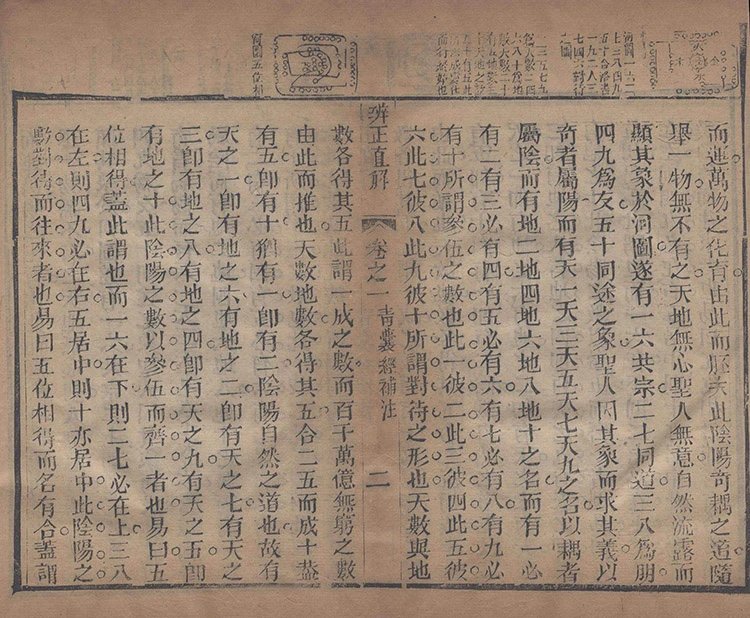 而運萬物之化育由此而胚夫此陰陽奇耦之道隨
舉一物無不有之天地無心聖人無意自然流露而
顯其象於河圖遂有一六共宗二七同道三八爲朋
四九爲友五十同途之象聖人因其象而求其義以
奇者屬陽而有天一天三天五天七天九之名以耦者
屬陰而有地二地四地六地八地十之名而有一必
有二有三必有四有五必有六有七必有八有九必
有十所謂參伍之數也此一彼二此三彼四此五彼
六此七彼八此九彼十所謂對待之形也天數與地
辨正直解 卷之一 青囊經補注 二
數各得其五此謂一成之數而百千萬億無窮之數
由此而推也天數地數各得其五合二五而成十蓋
有五卽有十猶有一卽有二陰陽自然之道也故有
天之一卽有地之六有地之二卽有天之七有天之
三卽有地之八有地之四卽有天之九有天之五卽
有地之十此陰陽之數以參伍而齊一者也易曰五
位相得蓋此謂也而一六在下則二七必在上三八
在左則四九必在右五居中則十亦居中此陰陽之
數對待而往來者也易曰五位相得而各有合蓋謂
一三五七九
六八十爲地
有五地數三
十天地之數
五十有五此